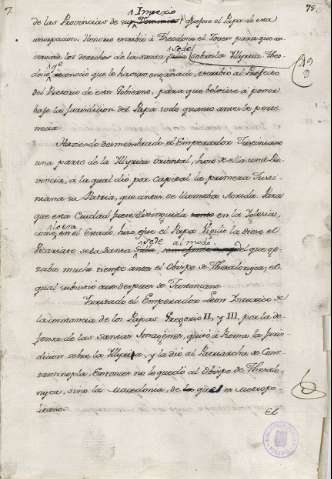 7.
75,
Imperio
de las Provincias de su Dominio, ofreciose el Papa de esta
usurpacion. Honorio escribió á Theodosio el Joven para que an
los derechos de la santa Sede sobre la Illyria: Theo
que le havian engañado, escribió al Prefecto
del Pretorio de este Gobierno, para que bolviese á poner
bajo la Jurisdicion del Papa todo quanto antes le perte
necia.
Haviendo desmembrado el Emperador Justiniano
una parte de la Illyria Oriental, hizo de ella una Pro
vincia, á la qual dió por Capital la primera Justi
niana su Patria, que antes se llamaba Acrida. Para
que esta Ciudad fuese en la Iglesia,
como en el Estado, hizo que el Papa Vigilio la diese el
Vicariato de la Santa Sede, al modo que el que go
zaba mucho tiempo antes el Obispo de Thesalonica, el
qual subsistió aun despues de Justiniano.
Irritado el Emperador Leon Isaurico de
la constancia de los Papas Gregorio II, y III, por la de
fensa de las Santas Imagenes, quitó á Roma la Juris
dicion sobre la Illyria, y la dió al Patriarcha de Cons
tantinopla. Entonces no le quedó al Obispo de Thesalo
nica, sino la Macedonia, de la que es Metropo
litano.
El